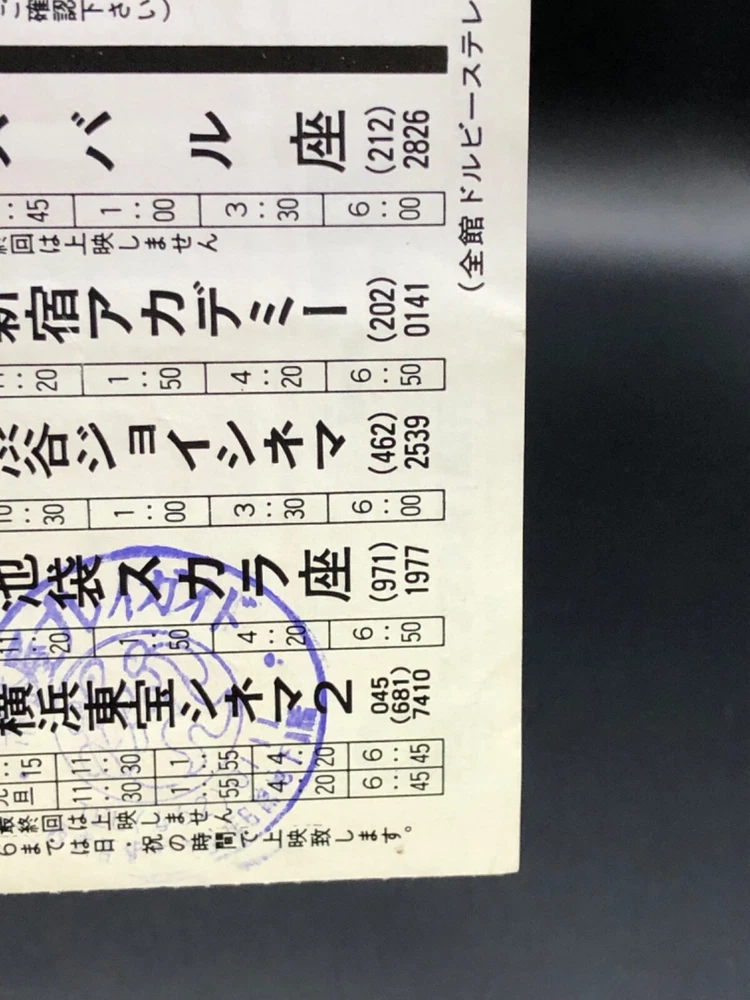 ご確認下さい)
バル座
(212)
2826
:45 1:00 3:30 6:00
終回は上映しません
新宿アカデミー
(202)
0141
:20 1:50 4:20 6:50
渋谷ジョイシネマ
(462)
2539
10:30 1:00 3:30 6:00
池袋スカラ座
(971)
1977
11:20 1:50 4:20 6:50
横浜東宝シネマ2
045
(681)
7410
:15 11:30 1:55 4:20 6:45
元旦 11:30 1:55 4:20 6:45
最終回は上映しません
6までは日・祝の時間で上映致します。
(全館ドルビーステレ
プレイガイド